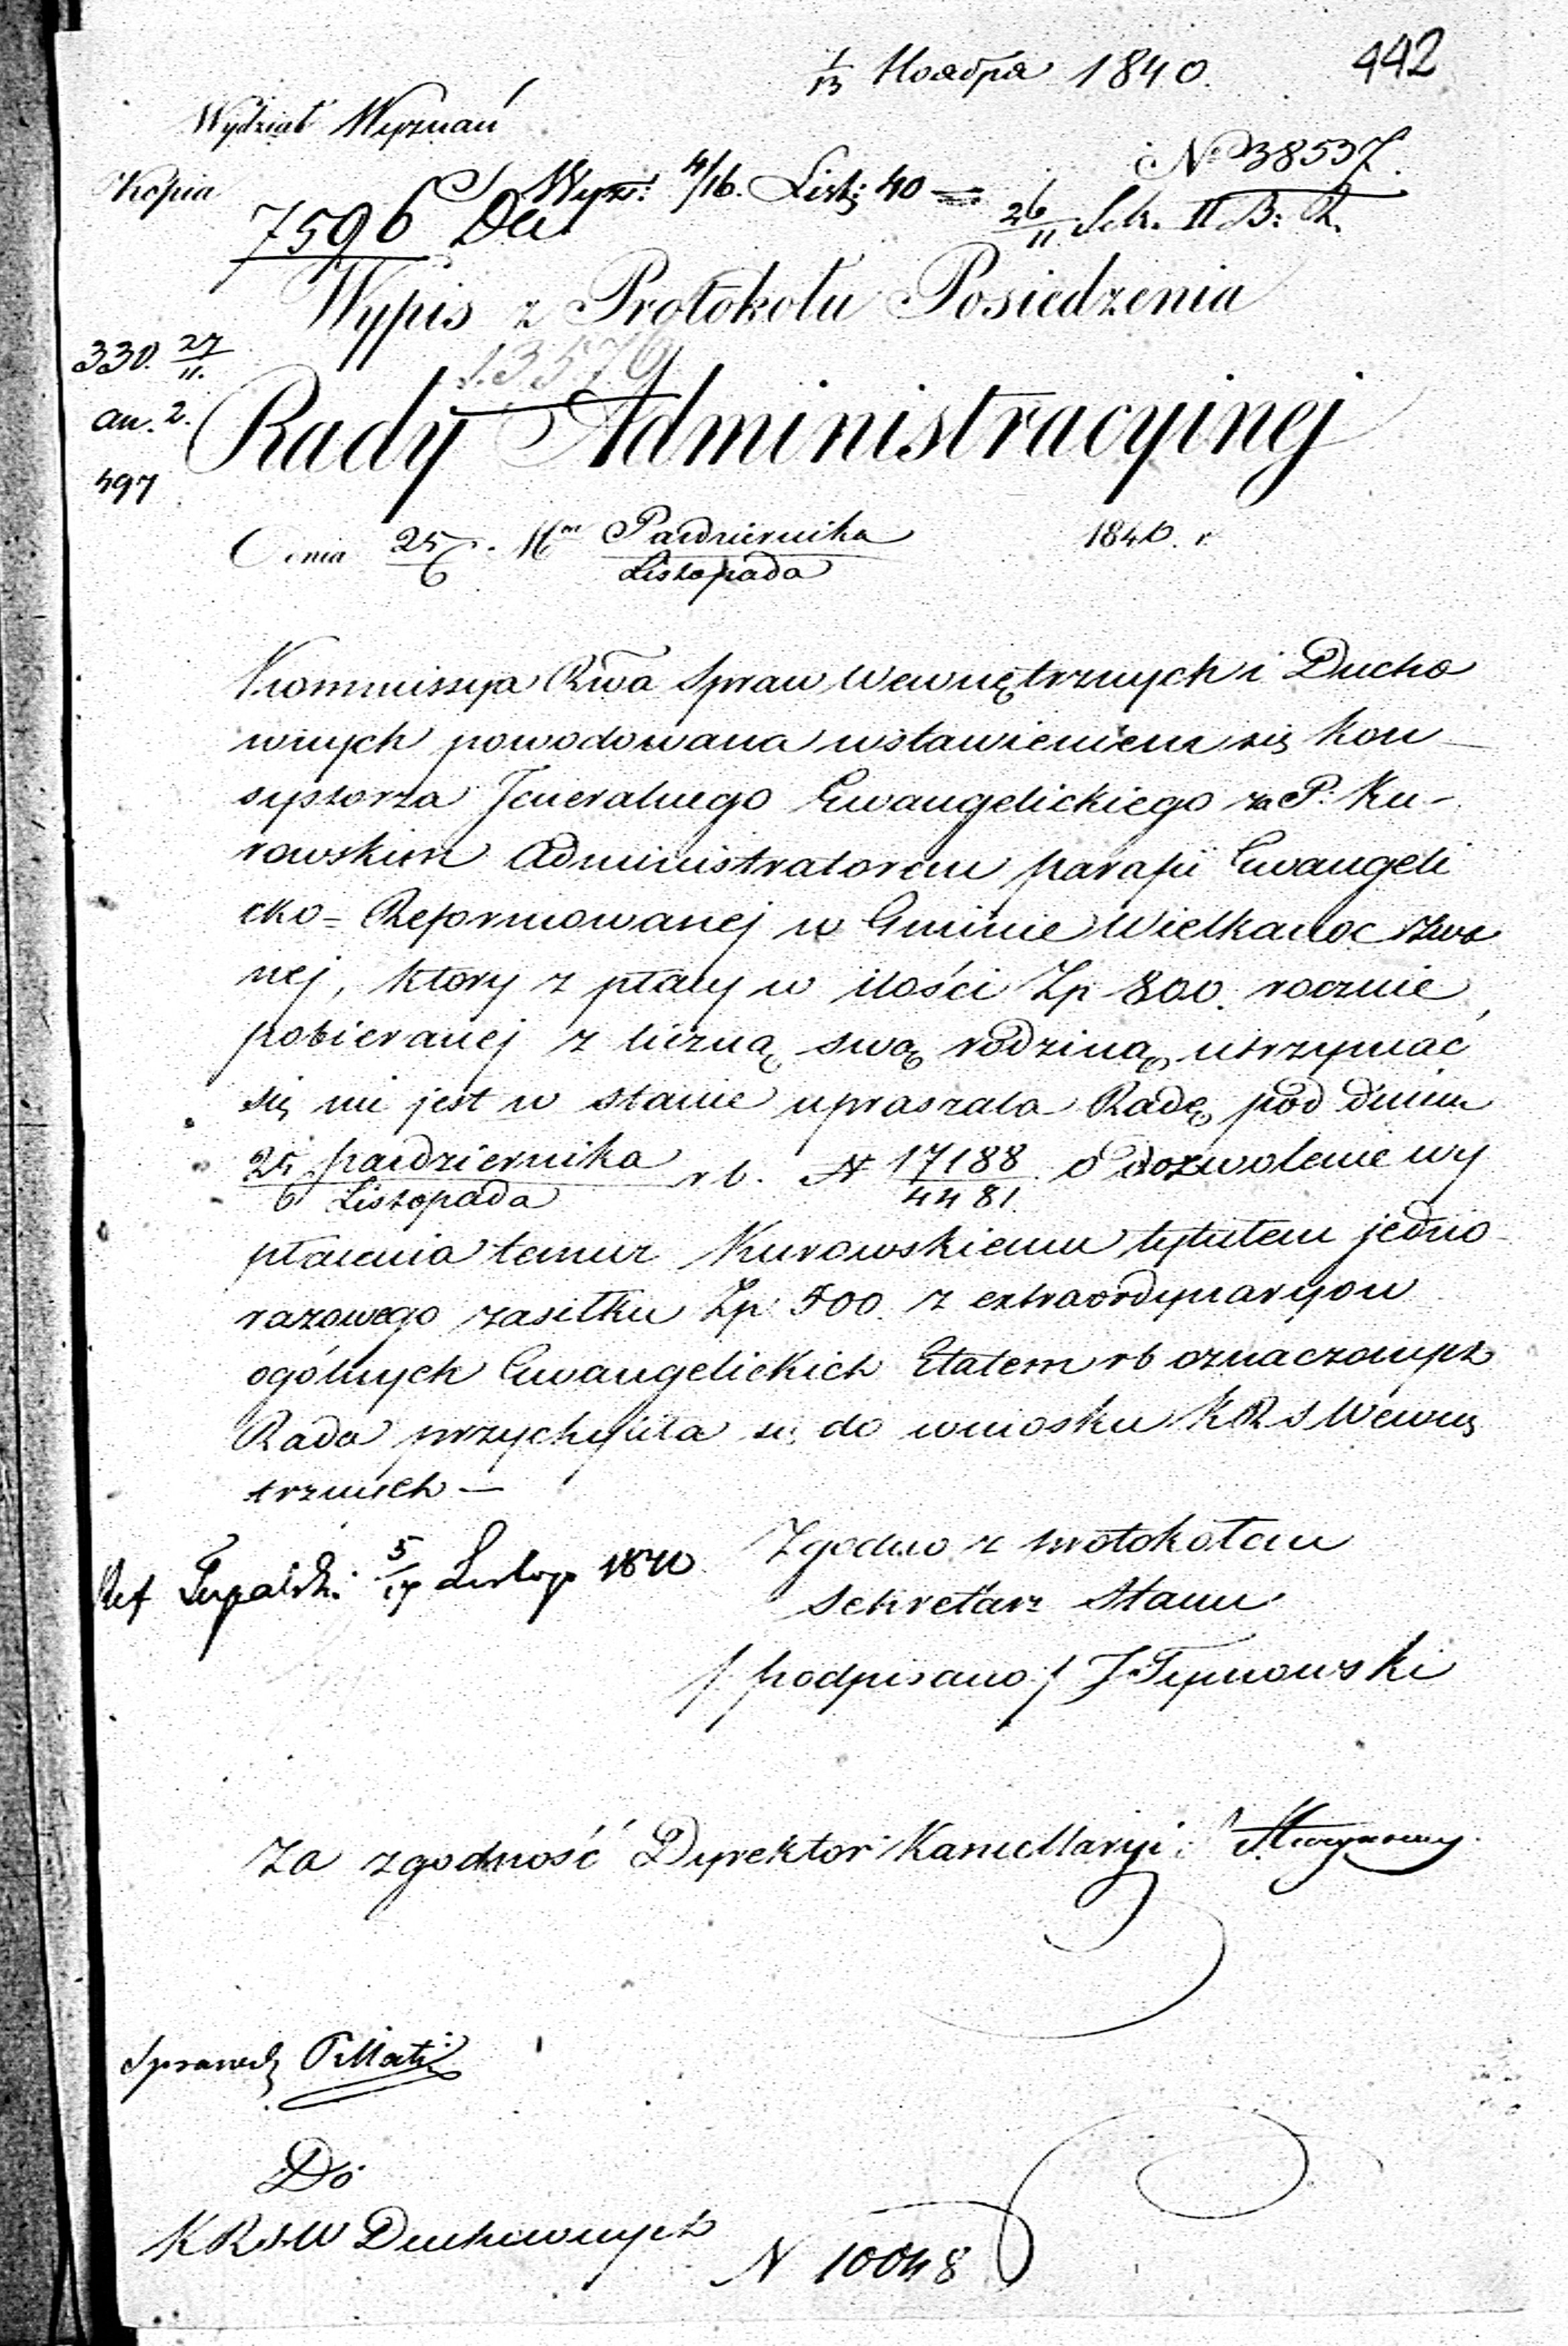 1/13 Ноября 1840. 442
Wydział Wyznań
Kopia
N. 38537.
Wyzn: 4/16. List: 40 =
26/11 Sek. II B: R.
7596
Wypis z Protokołu Posiedzenia
330. 27/11.
13576
an. 2.
Rady Administracyinej
497
Dnia 25/6. Mca Pazdziernika/Listopada 1840. r.
Kommissya Rwa Spraw Wewnętrznych i Ducho
wnych powodowana wstawieniem się Kon-
systorza Jeneralnego Ewangelickiego za P. Ku-
rowskim Administratorem parafii Ewangeli
cko=Reformowanej w Gminie Wielkanoc zwa
nej, który z płacy w ilości Zp 800. rocznie,
pobieranej z liczną swą rodziną utrzymać
się nie jest w stanie upraszała Radę pod dniem
25 pazdziernika/6 Listopada r b. N 17188/4481. o dozwolenie wy
płacenia temuż Kurowskiemu tytułem jedno-
razowego zasiłku Zp 500. z extraordynaryow
ogólnych Ewangelickich Etatem rb oznaczonych
Rada przychyliła się do wniosku KRS Wewnę
trznych —
Zgodno z protokołem
Ref 5/17 Listop 1840
Sekretarz Stanu
/podpisano/ J Tymowski
Za zgodność Dyrektor Kancellaryi
Sprawdz
Do
KRSW Duchownych
N 10048